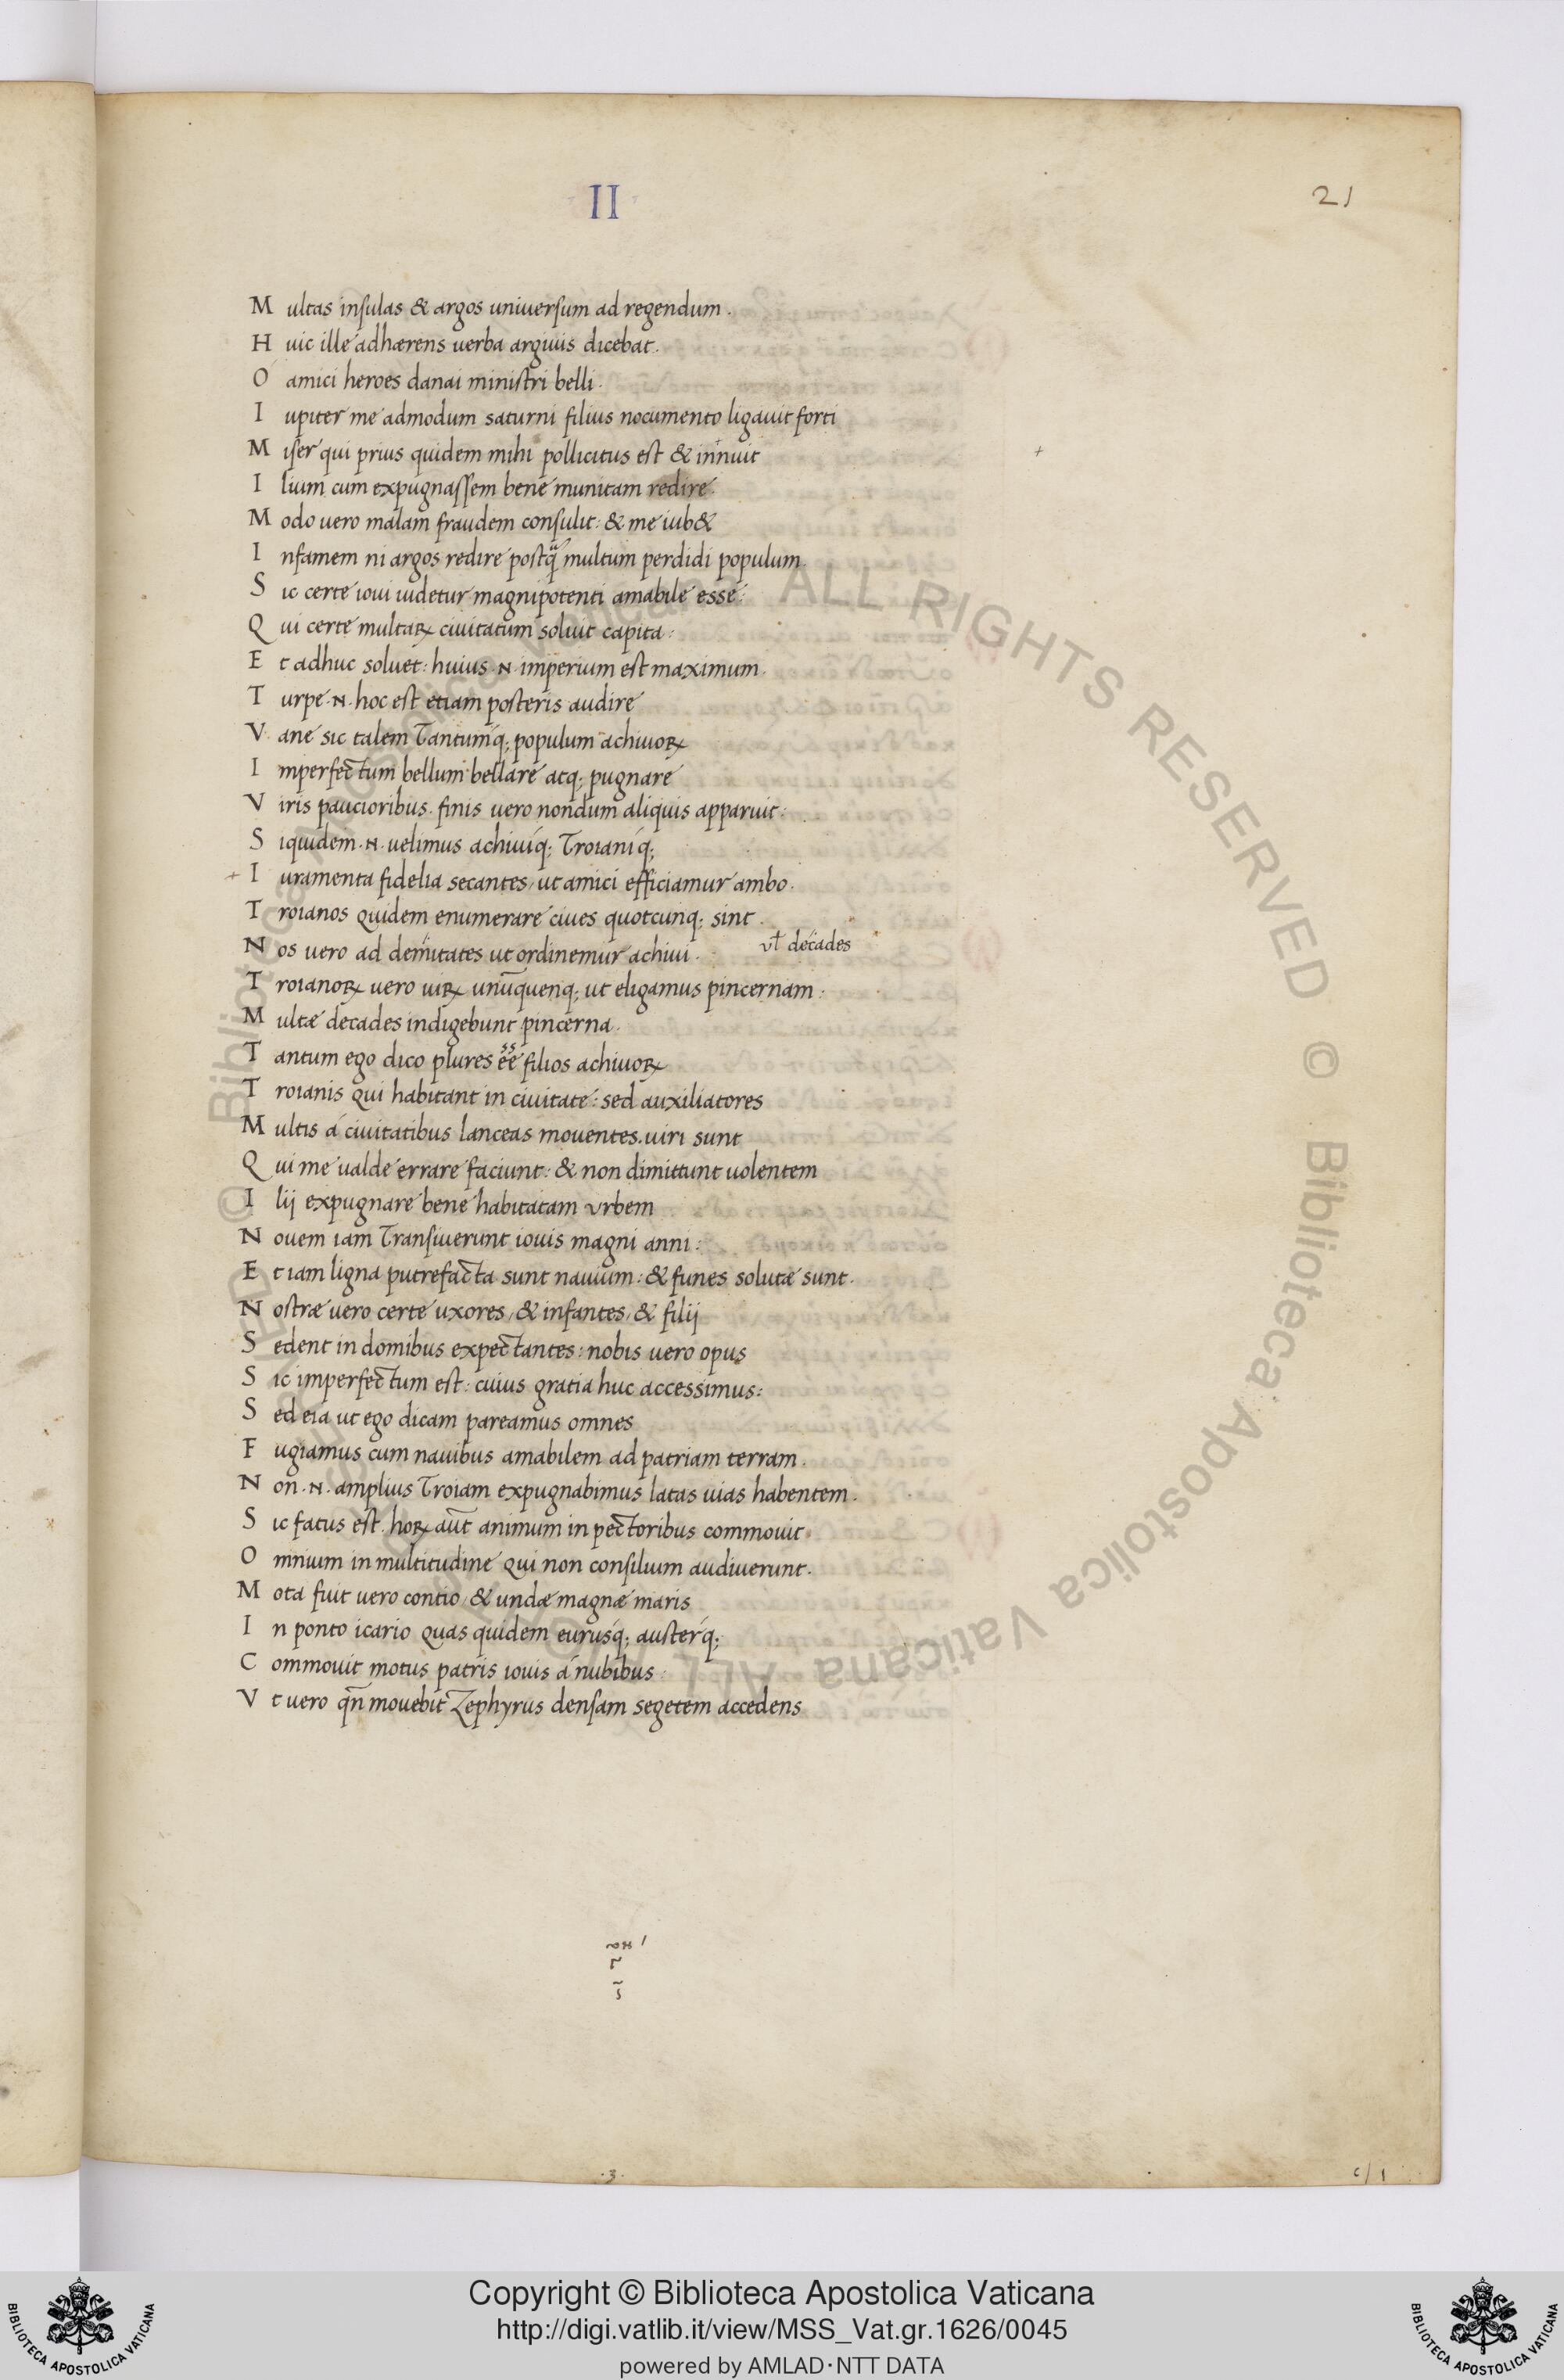 II
21
Multas insulas & argos uniuersum ad regendum.
Huic ille adhærens uerba argiuis dicebat.
O amici heroes danai ministri belli.
Iupiter me admodum saturni filius nocumento ligauit forti
Miser qui prius quidem mihi pollicitus est & innuit
Ilium cum expugnassem bene munitam redire.
Modo uero malam fraudem consulit: & me iub&
Infamem ni argos redire postq̃ multum perdidi populum.
Sic certe ioui uidetur magnipotenti amabile esse:
Qui certe multaꝝ ciuitatum soluit capita:
Et adhuc soluet: huius .N. imperium est maximum.
Turpe .N. hoc est etiam posteris audire
Vane sic talem Tantumq; populum achiuoꝝ
Imperfectum bellum bellare atq; pugnare
Viris paucioribus. finis uero nondum aliquis apparuit:
Siquidem .N. uelimus achiuiq; Troianiq;
+ Iuramenta fidelia secantes, ut amici efficiamur ambo.
Troianos quidem enumerare ciues quotcunq; sint.
Nos uero ad demitates ut ordinemur achiui. vł decades
Troianoꝝ uero uiꝝ unũquenq; ut eligamus pincernam:
Multæ decades indigebunt pincerna.
Tantum ego dico plures ee filios achiuoꝝ
Troianis qui habitant in ciuitate: sed auxiliatores
Multis á ciuitatibus lanceas mouentes. uiri sunt
Qui me ualde errare faciunt: & non dimittunt uolentem
Ilij expugnare bene habitatam vrbem
Nouem iam Transiuerunt iouis magni anni:
Et iam ligna putrefacta sunt nauium: & funes solutæ sunt.
Nostræ uero certe uxores, & infantes, & filij
Sedent in domibus expectantes: nobis uero opus
Sic imperfectum est: cuius gratia huc accessimus:
Sed eia ut ego dicam pareamus omnes
Fugiamus cum nauibus amabilem ad patriam terram.
Non .N. amplius Troiam expugnabimus latas uias habentem.
Sic fatus est. hoꝝ aũt animum in pectoribus commouit
Omnium in multitudine qui non consilium audiuerunt.
Mota fuit uero contio, & undæ magnæ maris
In ponto icario quas quidem eurusq; austerq;
Commouit motus patris iouis á nubibus:
Vt uero qñ mouebit Zephyrus densam segetem accedens
.3.
c/1
Copyright © Biblioteca Apostolica Vaticana
http://digi.vatlib.it/view/MSS_Vat.gr.1626/0045
powered by AMLAD·NTT DATA
BIBLIOTECA APOSTOLICA VATICANA
BIBLIOTECA APOSTOLICA VATICANA
© Biblioteca Apostolica Vaticana ALL RIGHTS RESERVED